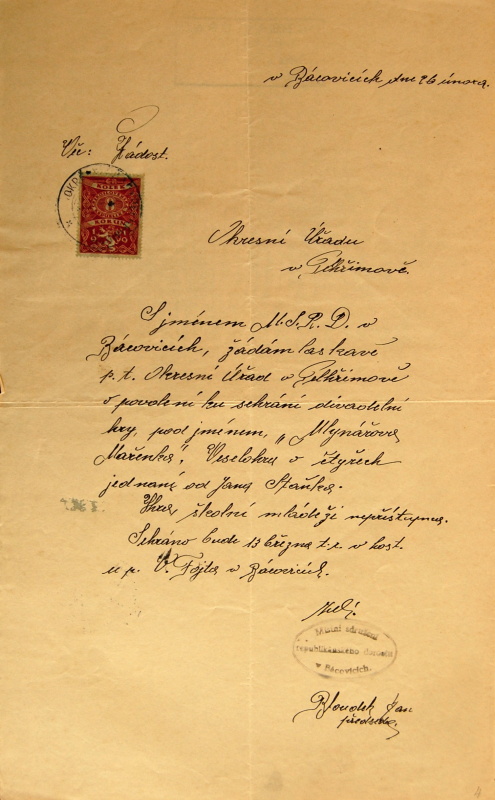 v Bácovicích dne 26 února.
Věc: Žádost.
OKR
KOLEK
KORUN
Okresní Úřadu
v Pelhřimově.
S jménem M.S.R.D. v
Bácovicích, žádám laskavě
p. t. Okresní Úřad v Pelhřimově
o povolení ku sehrání divadelní
hry, pod jménem, „Mlynářova
Mařenka", Veselohra o čtyřech
jednání od Jana Staňka.
Hra školní mládeži nepřístupna.
Sehráno bude 13 března t. r. v host.
u p. V. Fojla v Bácovicích.
Místní sdružení
republikánského dorostu
v Bácovicích.
Bloudek Jan
předseda.
4